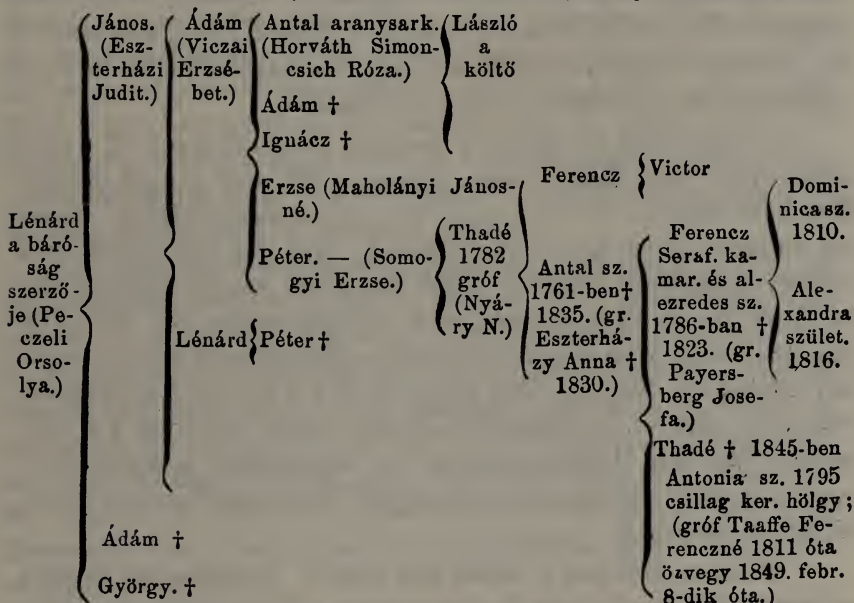 Lénárd
a báró-
ság
szerző-
je (Pe-
czeli
Orso-
lya.)
János.
(Esz-
terházi
Judit.)
Ádám †
György. †
Ádám
(Viczai
Erzsé-
bet.)
Lénárd
Antal aranysark.
(Horváth Simon-
csich Róza.)
Ádám †
Ignácz †
Erzse (Maholányi János-
né.)
Péter. — (Somo-
gyi Erzse.)
Péter †
László
a
költő
Thadé
1782
gróf
(Nyá-
ry N.)
Ferencz
Antal sz.
1761-ben†
1835. (gr.
Eszterhá-
zy Anna †
1830.)
Victor
Ferencz
Seraf. ka-
mar. és al-
ezredes sz.
1786-ban †
1823. (gr.
Payers-
berg Jose-
fa.)
Thadé † 1845-ben
Antonia sz. 1795
csillag ker. hölgy;
(gróf Taaffe Fe-
renczné 1811 óta
özvegy 1849. febr.
8-dik óta.)
Domi-
nica sz.
1810.
Ale-
xandra
szület.
1816.